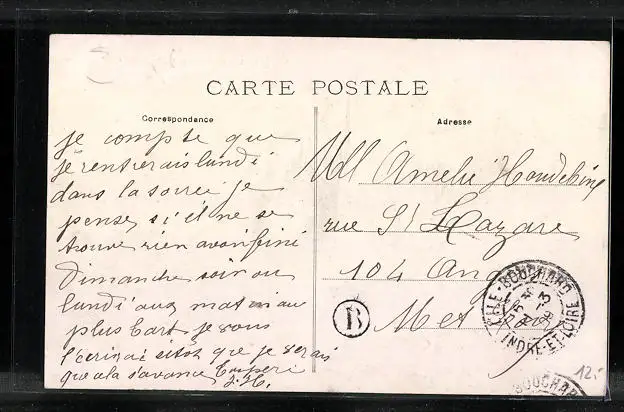 CARTE POSTALE
Correspondance
Adresse
je compte que
je rentrerais lundi
dans la soirée je
pense, si il ne se
trouve rien avoir fini
Dimanche soir ou
lundi aux mat
plus tart je vous
l'écrirai sitôt que je serais
que ala s'avance
J. H.
Mll Amelie Houdebine
rue St Lazare
104 Ang
Met
B
ILE-BOUCHARD
INDRE-ET-LOIRE
BOUCHAR
12.-